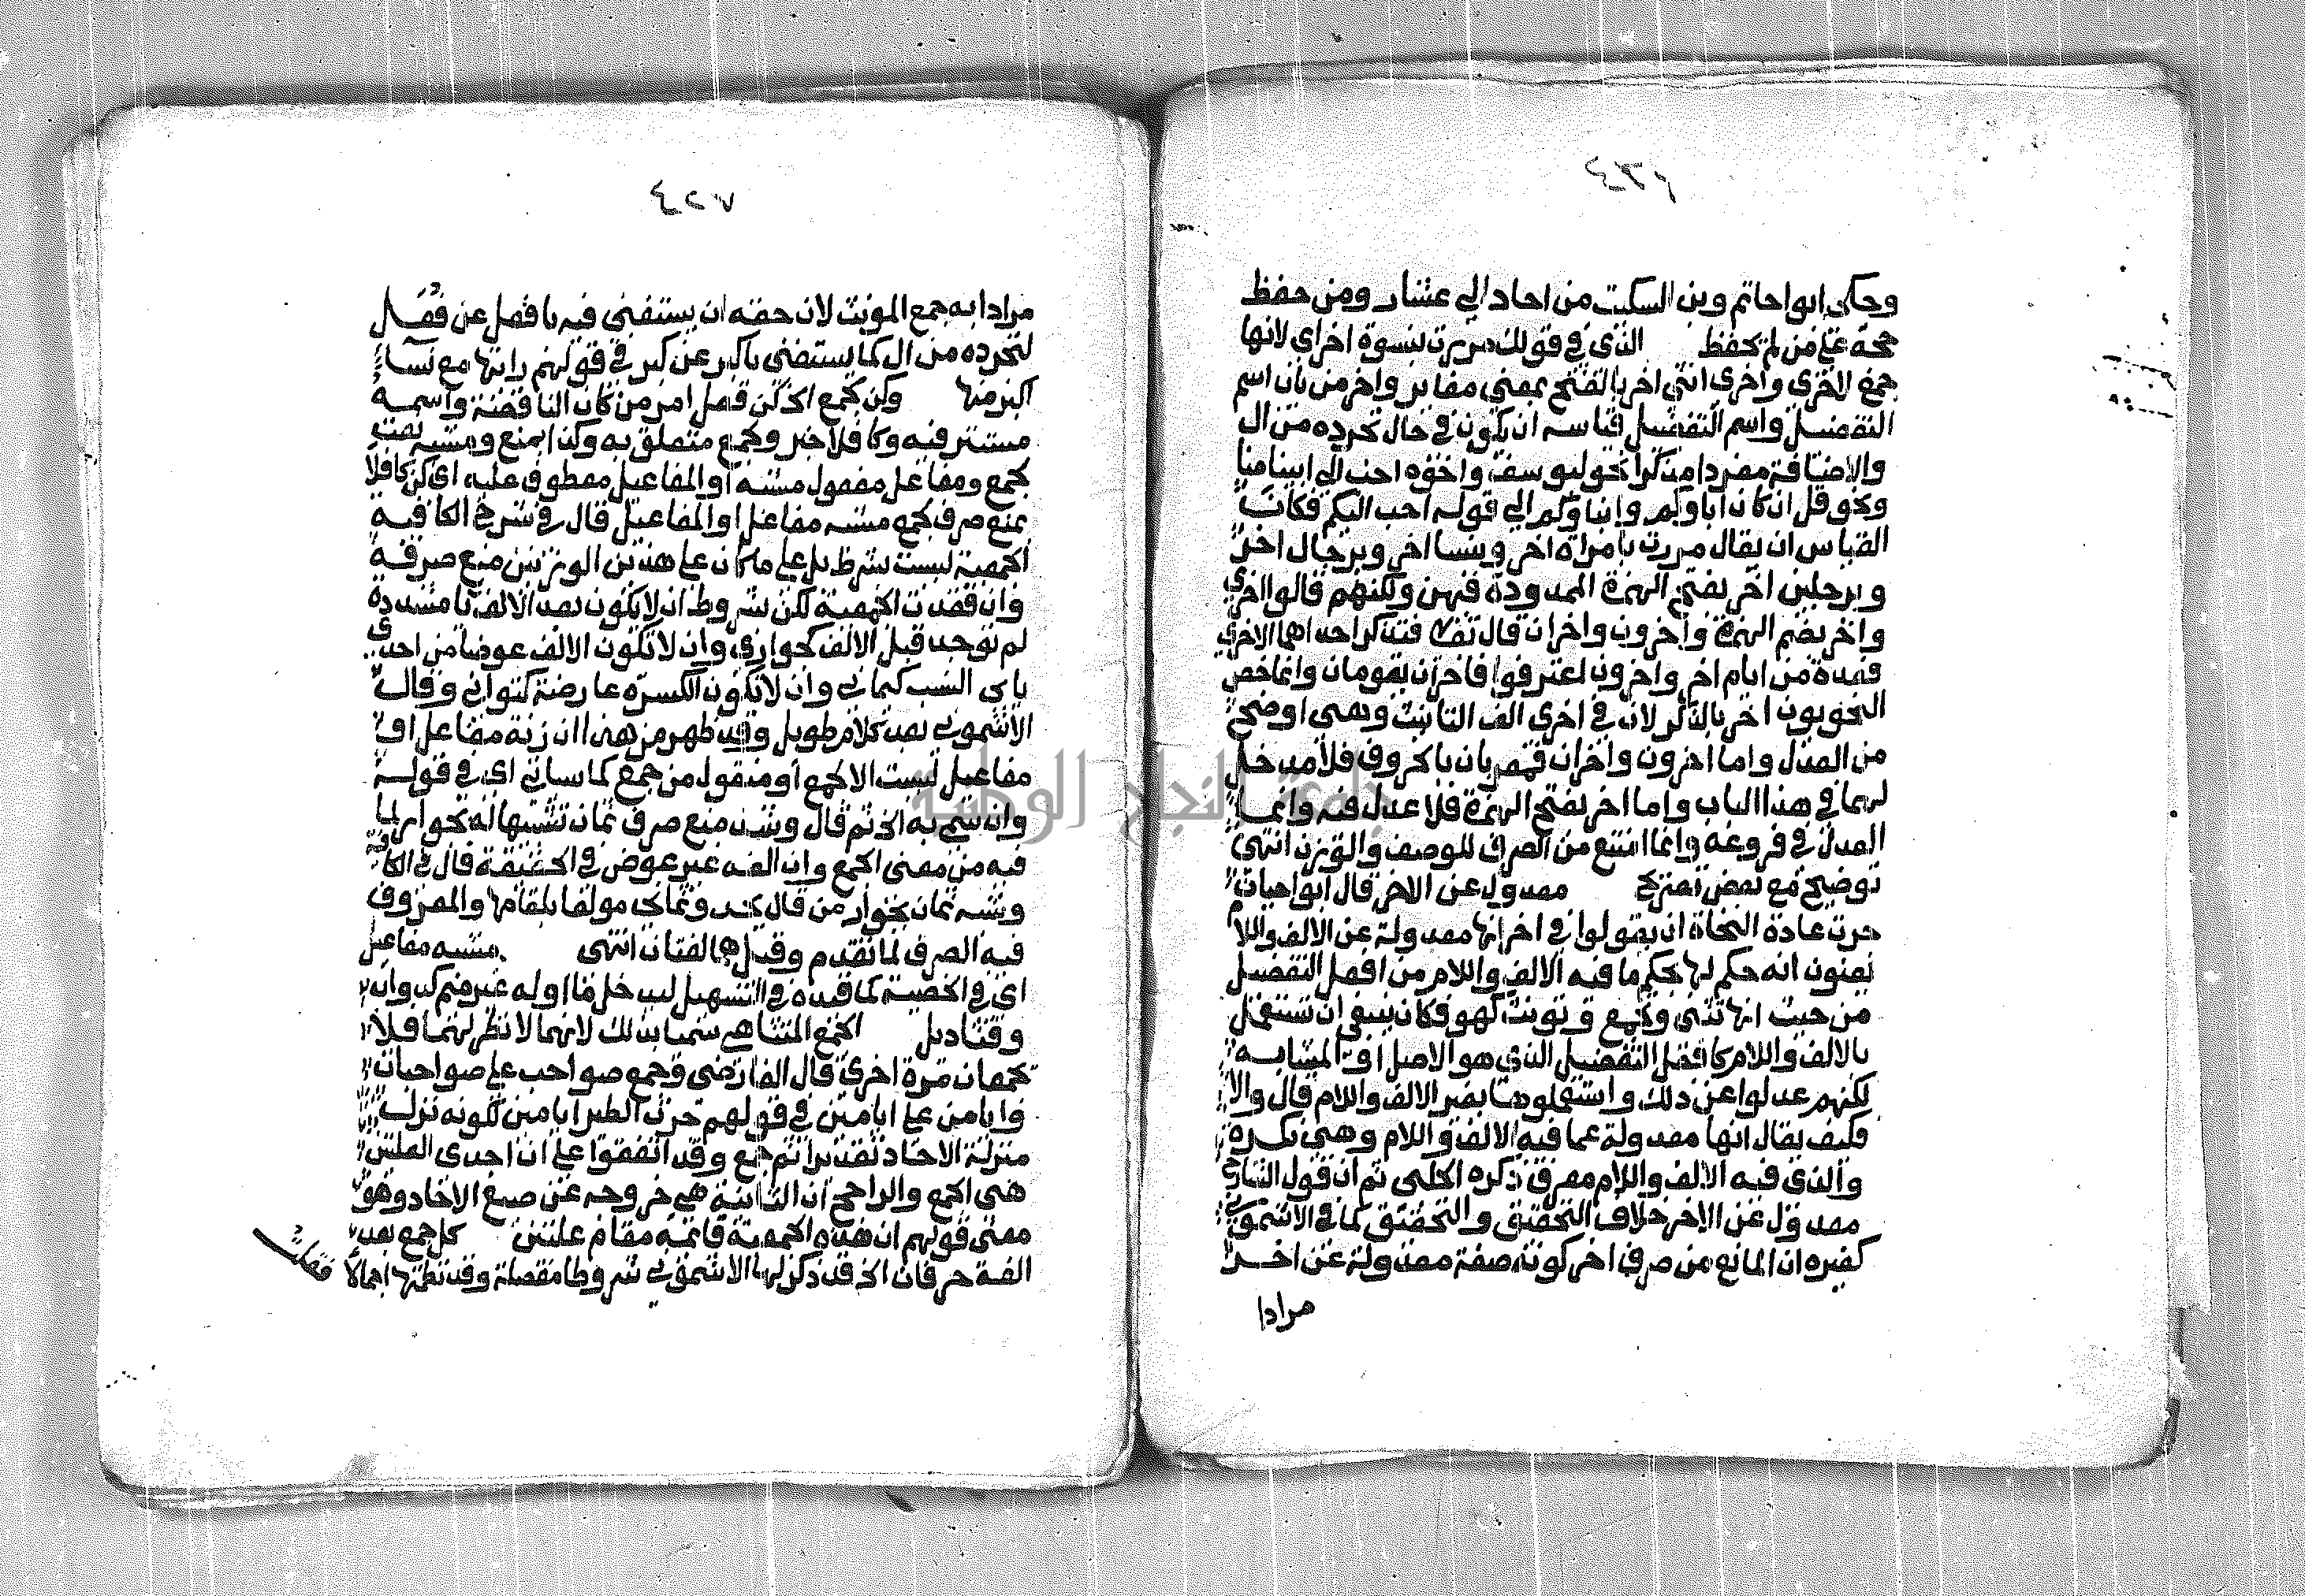 ٤٣٦
وحكى ابوا حاتم وبن السكيت من احاد الي عشار ومن حفظ
حجة على من لم يحفظ الذى في قولك مررت بنسوة اخراي لانها
جمع لاخرى واخرى انثي اخر بالفتح بمعنى مغاير واخر من بان اسم
التفضيل واسم التفضيل قياسه ان يكون في حال تجرده من ال
والاضافة مفردا مذكرا نحو ليوسف واخوه احب الي ابينا منا
ونحو قل ان كان اباوكم وابناوكم الي قوله احب اليكم فكان
القياس ان يقال مررت بامراة اخر وبنسا اخر وبرجال اخر
وبرجلين اخر بفتح الهمزة الممدودة فيهن ولكنهم قالوا اخرى
واخر بضم الهمزة واخرون واخران قال تعالى فتذكر احداهما الاخرى
فعدة من ايام اخر واخرون اعترفوا فاخران يقومان وانما خص
النحويون اخر بالذكر لان في اخرى الف التانيث وهى اوضح
من العدل واما اخرون واخران فمعربان بالحروف فلا مدخل
لهما في هذا الباب واما اخر بفتح الهمزة فلا عدل فيه وانما
العدل في فروعه وانما امتنع من الصرف للوصف والوزن انتهى
توضيح مع بعض تصريح معدول عن الاخر قال ابوا حيان
جرت عادة النحاة ان يقولوا في اخر انها معدولة عن الالف واللام
يعنون انه حكم لها بحكم ما فيه الالف واللام من افعل التفضيل
من حيث انها تثنى وتجمع وتونث كهو فكان ينبغي ان تستعمل
بالالف واللام كافعل التفضيل الذي هو الاصل او المشابه
لكنهم عدلوا عن ذلك واستعملوها بغير الالف واللام قال والا
فكيف يقال انها معدولة عما فيه الالف واللام وهى نكره
والذى فيه الالف واللام معرفة ذكره الحلبى ثم ان قول الشارح
معدول عن الاخر خلاف التحقيق والتحقيق كما في الاشموني
كغيره ان المانع من صرف اخر كونه صفة معدولة عن اخر
مرادا
٤٣٧
مرادا به جمع المونث لان حقه ان يستغنى فيه بافعل عن فعل
لتجرده من ال كما يستغنى باكبر عن كبر في قولهم رايتها مع نسآء
اكبر منها وكن لجمع الخ كن فعل امر من كان الناقصة واسمه
مستتر فيه وكافلا خبر ولجمع متعلق به وكذا بمنع ومشبه نعت
لجمع ومفاعل مفعول مشبه أو المفاعيل معطوف عليه اى كن كافلا
بمنع صرف لجمع مشبه مفاعل او المفاعيل قال في شرح الكافية
الجمعية ليست بشرط بل على ما كان على هذين الوزنين منع صرفه
وان فقدت الجمعية لكن بشروط ان لا يكون بعد الالف يا مشددة
لم توجد قبل الالف كحواري وان لا تكون الالف عوضا من احدى
ياى النسب كيماني وان لا تكون الكسرة عارضة كتواني وقال
الاشموني بعد كلام طويل وقد ظهر من هذا ان زنة مفاعل او
مفاعيل ليست الا لجمع أو منقول من جمع كما ساتي اي في قوله
وان سمي به الخ ثم قال وشذ منع صرف ثمان تشبيها له بحوار لما
فيه من معنى الجمع وان الفه غير عوض في الحقيقة قال في الكافية
وشبه ثمان بجوار من قال يحدو ثمانى مولعا بلقامها والمعروف
فيه الصرف لما تقدم وقيل هما لغتان انتهى مشبه مفاعيل
اى في الخصية كما قيده في التسهيل ليدخل ما اوله غير ميم كدوانب
وقناديل الجمع المتناهي سميا بذلك لانهما لا نظير لهما فلا
يجمعان مرة اخرى قال الفارضى وجمع صواحب على صواحبات
وايامن على ايامنين في قولهم جرت الطير ايامنين لكونه نزل
منزلة الاحاد تقديرا ثم جمع وقد اتفقوا على ان احدى العلتين
هى الجمع والراجح ان الثانية هي خروجه عن صيغ الاحاد وهو
معنى قولهم ان هذه الجمعية قائمة مقام علتين كل جمع بعد
الفه حرفان الخ قد ذكر لها الاشموني شروطا مفصلة وقد نظمتها اجمالا
فقلت